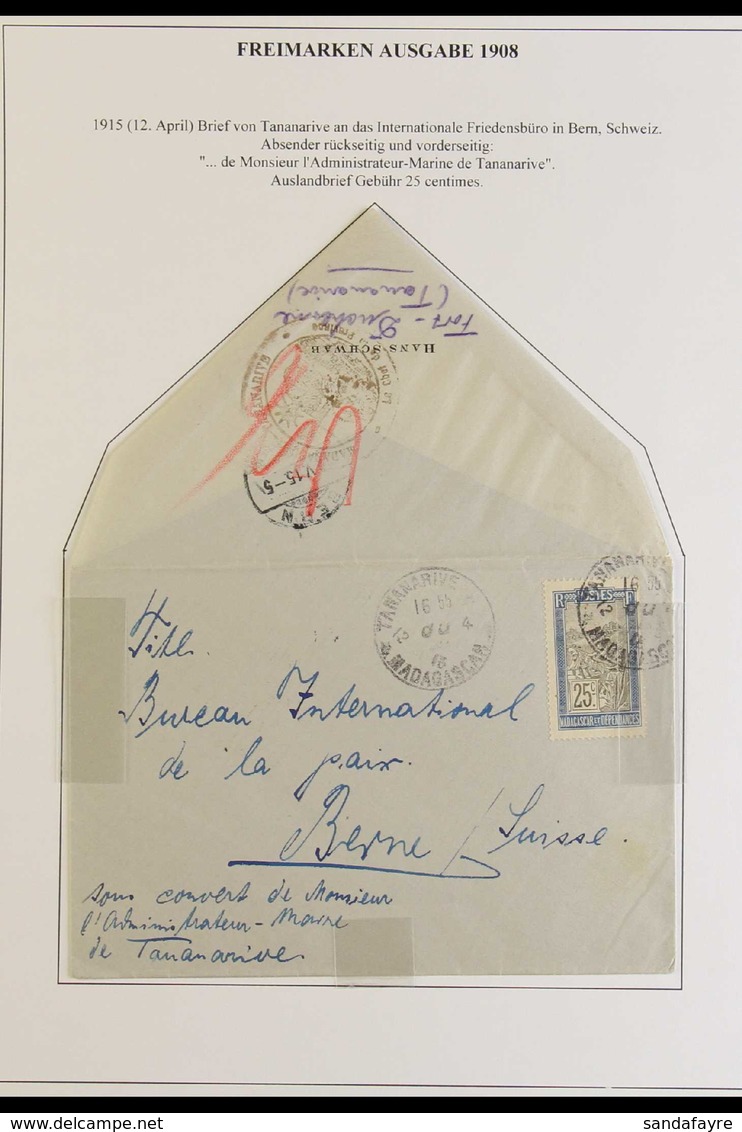 FREIMARKEN AUSGABE 1908
1915 (12. April) Brief von Tananarive an das Internationale Friedensbüro in Bern, Schweiz.
Absender rückseitig und vorderseitig:
"... de Monsieur l'Administrateur-Marine de Tananarive".
Auslandbrief Gebühr 25 centimes.
Fort-Duchesne
(Tananarive)
HANS SCHWAB
BERN
TANANARIVE
16 55
12 4
15
MADAGASCAR
TANANARIVE
16 55
12
MADAGASC
R POSTES F
25c
MADAGASCAR ET DÉPENDANCES
Titl.
Bureau International
de la paix.
Berne / Suisse.
sous couvert de Monsieur
l'Administrateur-Maire
de Tananarive.
sandafayre